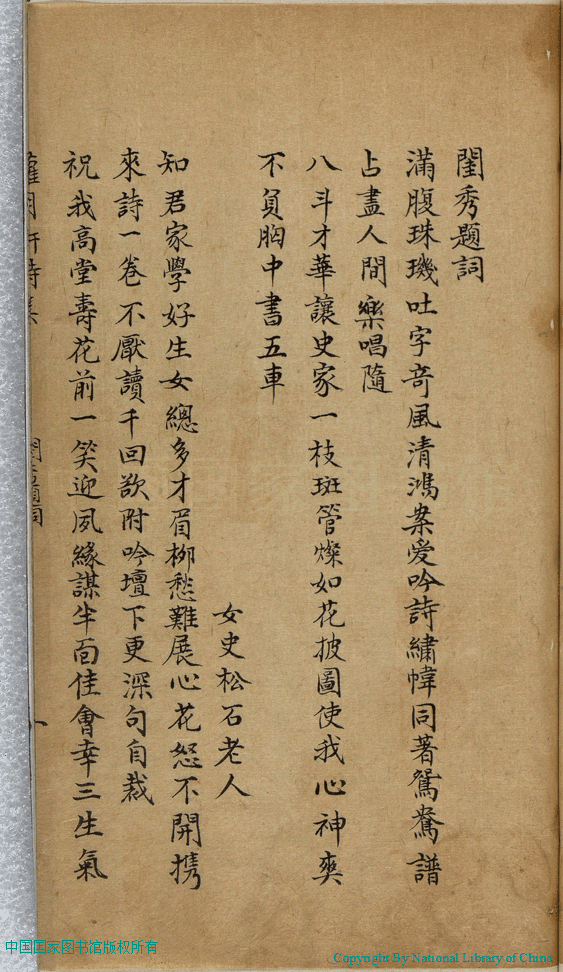 閨秀題詞
滿腹珠璣吐字竒風清鴻案愛吟詩繡幃同著鴛鴦譜
占盡人間樂唱隨
八斗才華讓史家一枝斑管燦如花披圖使我心神爽
不負胸中書五車
女史松石老人
知君家學好生女總多才眉柳愁難展心花怒不開携
來詩一卷不厭讀千回欲附吟壇下更深句自裁
祝我高堂壽花前一笑迎夙緣謀半面佳會幸三生氣
中国国家图书馆版权所有
Copyright By National Library of China